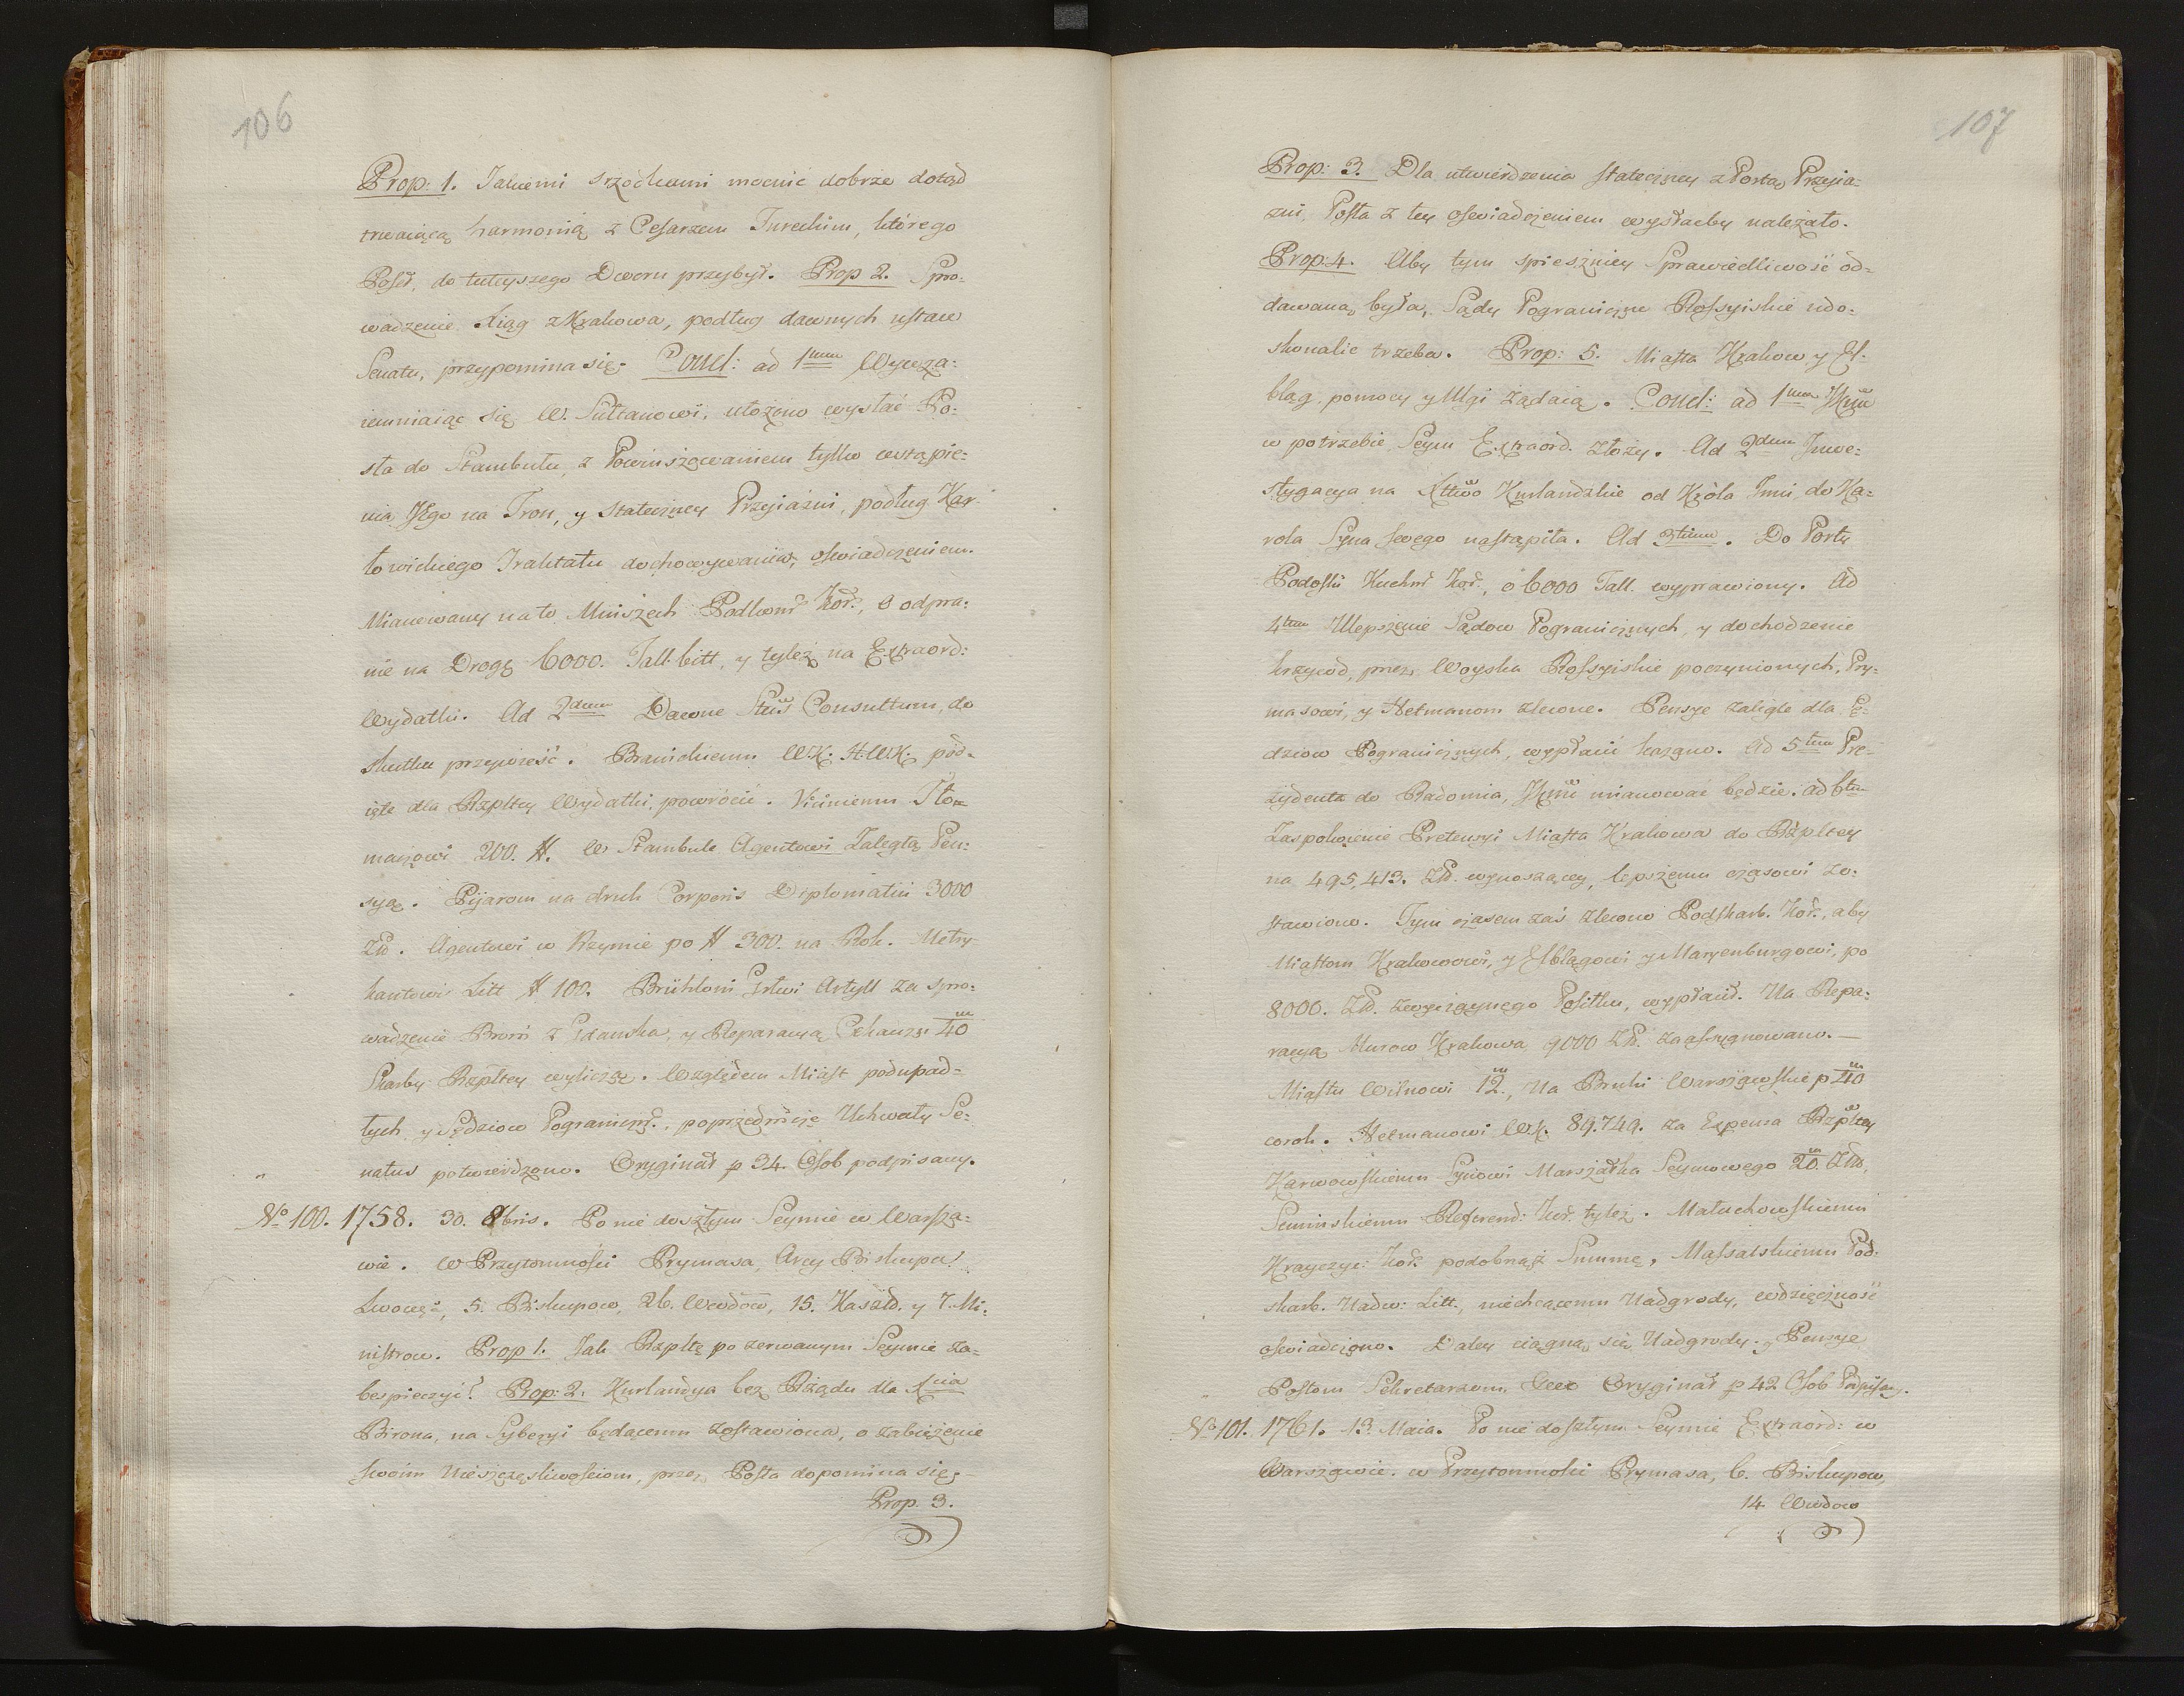 106
Prop: 1. Jakiemi srzodkami mocnić dobrze dotąd
trwaiącą harmonią z Cesarzem Tureckim, którego
Poseł, do tuteyszego Dworu przybył. Prop 2. Spro-
wadzenie Xiąg z Krakowa, podług dawnych ustaw
Senatu, przypomina się. Concl: ad 1mum Wywza-
iemniaiąc się W. Sułtanowi, ułożono wysłać Po-
sła do Stambułu, z Powinszowaniem tylko wstąpie-
nia Jego na Tron, y stateczney Przyiaźni, podług Kar-
łowickiego Traktatu dochowywania, oświadczeniem.
Mianowany na to Mniszech Podkom: Kor., a odpra-
nie na Drogę 6000. Tall. bitt, y tyleż na Extraord:
Wydatki. Ad 2dum Dawne Stus Consultum, do
skutku przywieść. Branickiemu W.K. H.W.K. pod-
ięte dla Rzpltey Wydatki, powrócić. Tło-
maczowi 200. #. W Stambule Agentowi Zaległą Pen-
syą. Pijarom na druk Corporis Diplomatici 3000
Zło. Agentowi w Rzymie po # 300. na Rok. Metry-
kantowi Litt # 100. Brühlowi Grłwi Artyll za spro-
wadzenie Broni z Gdanska, y Reparacyą Cekauzu 40m
Skarby Rzpltey wyliczą. Względem Miast podupad-
łych y Sędziow Pograniczn., poprzednicze Uchwały Se-
natus potwierdzono. Oryginał p 34. Osob podpisany.
No 100. 1758. 30. 8bris. Po nie doszłym Seymie w Warsza-
wie. W Przytomności Prymasa, Arcy Biskupa
Lwowsk., 5. Biskupow, 26. Wwdow, 15. Kasztd. y 7. Mi-
nistrow. Prop 1. Jak Rzpltę po zerwanym Seymie za-
bespieczyć? Prop: 2. Kurlandya bez Rządu dla Xcia
Birona, na Syberyi będącemu zostawiona, o zabieżenie
swoim Nieszczęśliwościom, przez Posła dopomina się.
Prop. 3.
107
Prop: 3. Dla utwierdzenia stateczney z Portą Przyia-
zni, Posła z tey oświadczeniem wysłaćby należało.
Prop: 4. Aby tym spieszniey Sprawiedliwość od-
dawana była, Sądy Pograniczne Rossyiskie udo-
skonalić trzeba. Prop: 5. Miasta Krakow y El-
bląg, pomocy y Ulgi żądaią. Concl: ad 1mum JKmć
w potrzebie, Seym Extraord. złoży. Ad 2dum Inwe-
stygacya na Xttwo Kurlandzkie od Króla Jmci, do Ka-
rola Syna swego nastąpiła. Ad 3tium. Do Porty
Podoski Kuchm Kor., o 6000 Tall. wyprawiony. Ad
4tum Ulepszenie Sądow Pogranicznych, y dochodzenie
krzywd, przez Woyska Rossyiskie poczynionych, Pry-
masowi, y Hetmanom zlecone. Pensye zaległe dla Sę-
dziow Pogranicznych, wypłacić kazano. Ad 5tum Pre-
zydenta do Radomia, JKmć mianować będzie. ad 6tum
Zaspokoienie Pretensyi Miasta Krakowa do Rzpltey
na 495,413. Zło. wynoszącey, lepszemu czasowi zo-
stawiono. Tym czasem zaś zlecono Podskarb. Kor., aby
Miastom Krakowowi, y Elblągowi y Maryenburgowi, po
8000. Zło. zwyczaynego Posiłku, wypłacił. Na Repa-
racyą Murow Krakowa 9000 Zło. zaassygnowano.—
Miastu Wilnowi 12m., Na Bruki Warszawskie p 40m
corok. Hetmanowi W.K. 89.749. za Expensa Rzpltey
Karwowskiemu Synowi Marszałka Seymowego 20m. Zło,
Siemieńskiemu Referend: Kor. tyleż. Małachowskiemu
Krayczyc: Kor. podobnąż Summę, Massalskiemu Pod-
skarb. Nadw: Litt., niechcącemu Nadgrody, wdzięczność
oświadczono. Daley ciągną się Nadgrody y Pensye
Posłom Sekretarzom. Oryginał p 42 Osob Podpisany.
No 101. 1761. 13. Maia. Po nie doszłym Seymie Extraord: w
Warszawie. w Przytomności Prymasa, 6. Biskupow,
14 Wwdow